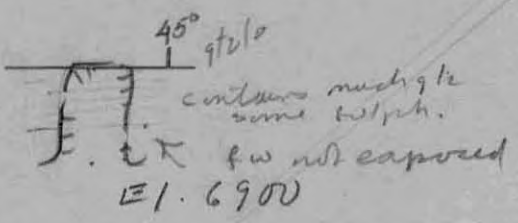 45° qtzlo
contains much qtz
some sulph.
fw not exposed
El. 6900